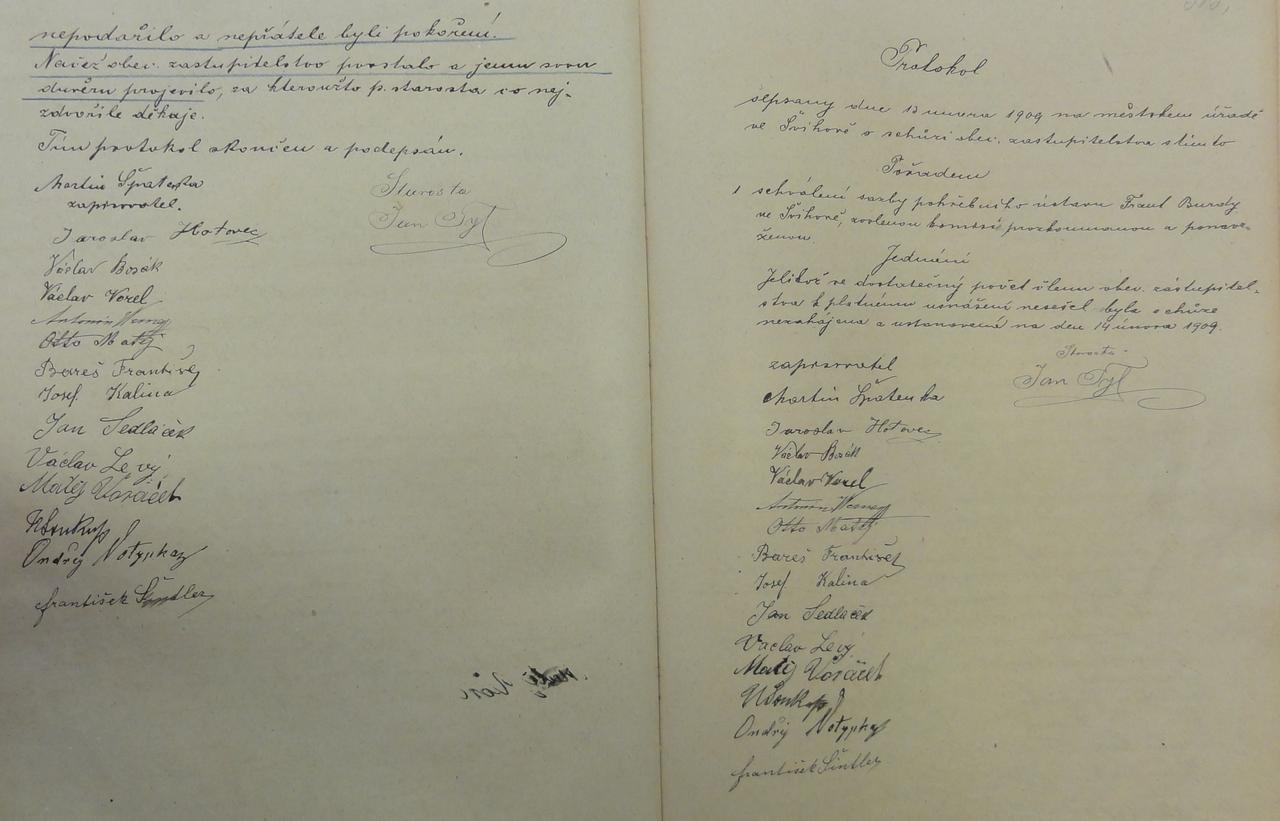 nepodařilo a nepřátele byli pokořeni.
Načež obec. zastupitelstvo povstalo a jemu svou
důvěru projevilo, za kteroužto p. starosta co nej-
zdvořile děkuje.
Tím protokol skončen a podepsán.
Martin Špatenka
zapisovatel.
Starosta
Jan Tyl
Jaroslav Hotovec
Václav Bosák
Václav Vorel
Antonín
Otto Matěj
Bareš František
Josef Kalina
Jan Sedláček
Václav Levý
Matěj Voráček
Soukup
Ondřej Notypka
František Šindler
Protokol
sepsaný dne 13 unora 1909 na městském úřadě
ve Švihově o schůzi obec. zastupitelstva s tímto
Pořadem
1 schválení sazby pohřebního ústavu Frant Burdy
ve Švihově, zvolenou komisí prozkoumanou a
Jednání
Jelikož se dostatečný počet členu obec. zástupitel-
stva k platnému usnášení nesešel byla schůze
nezahájena a ustanovena na den 14 února 1909.
Starosta
Jan Tyl
zapisovatel
Martin Špatenka
Jaroslav Hotovec
Václav Bosák
Václav Vorel
Antonín
Otto Matěj
Bareš František
Josef Kalina
Jan Sedláček
Vaclav Levý
Matěj Voráček
Soukup
Ondřej Notypka
František Šindler